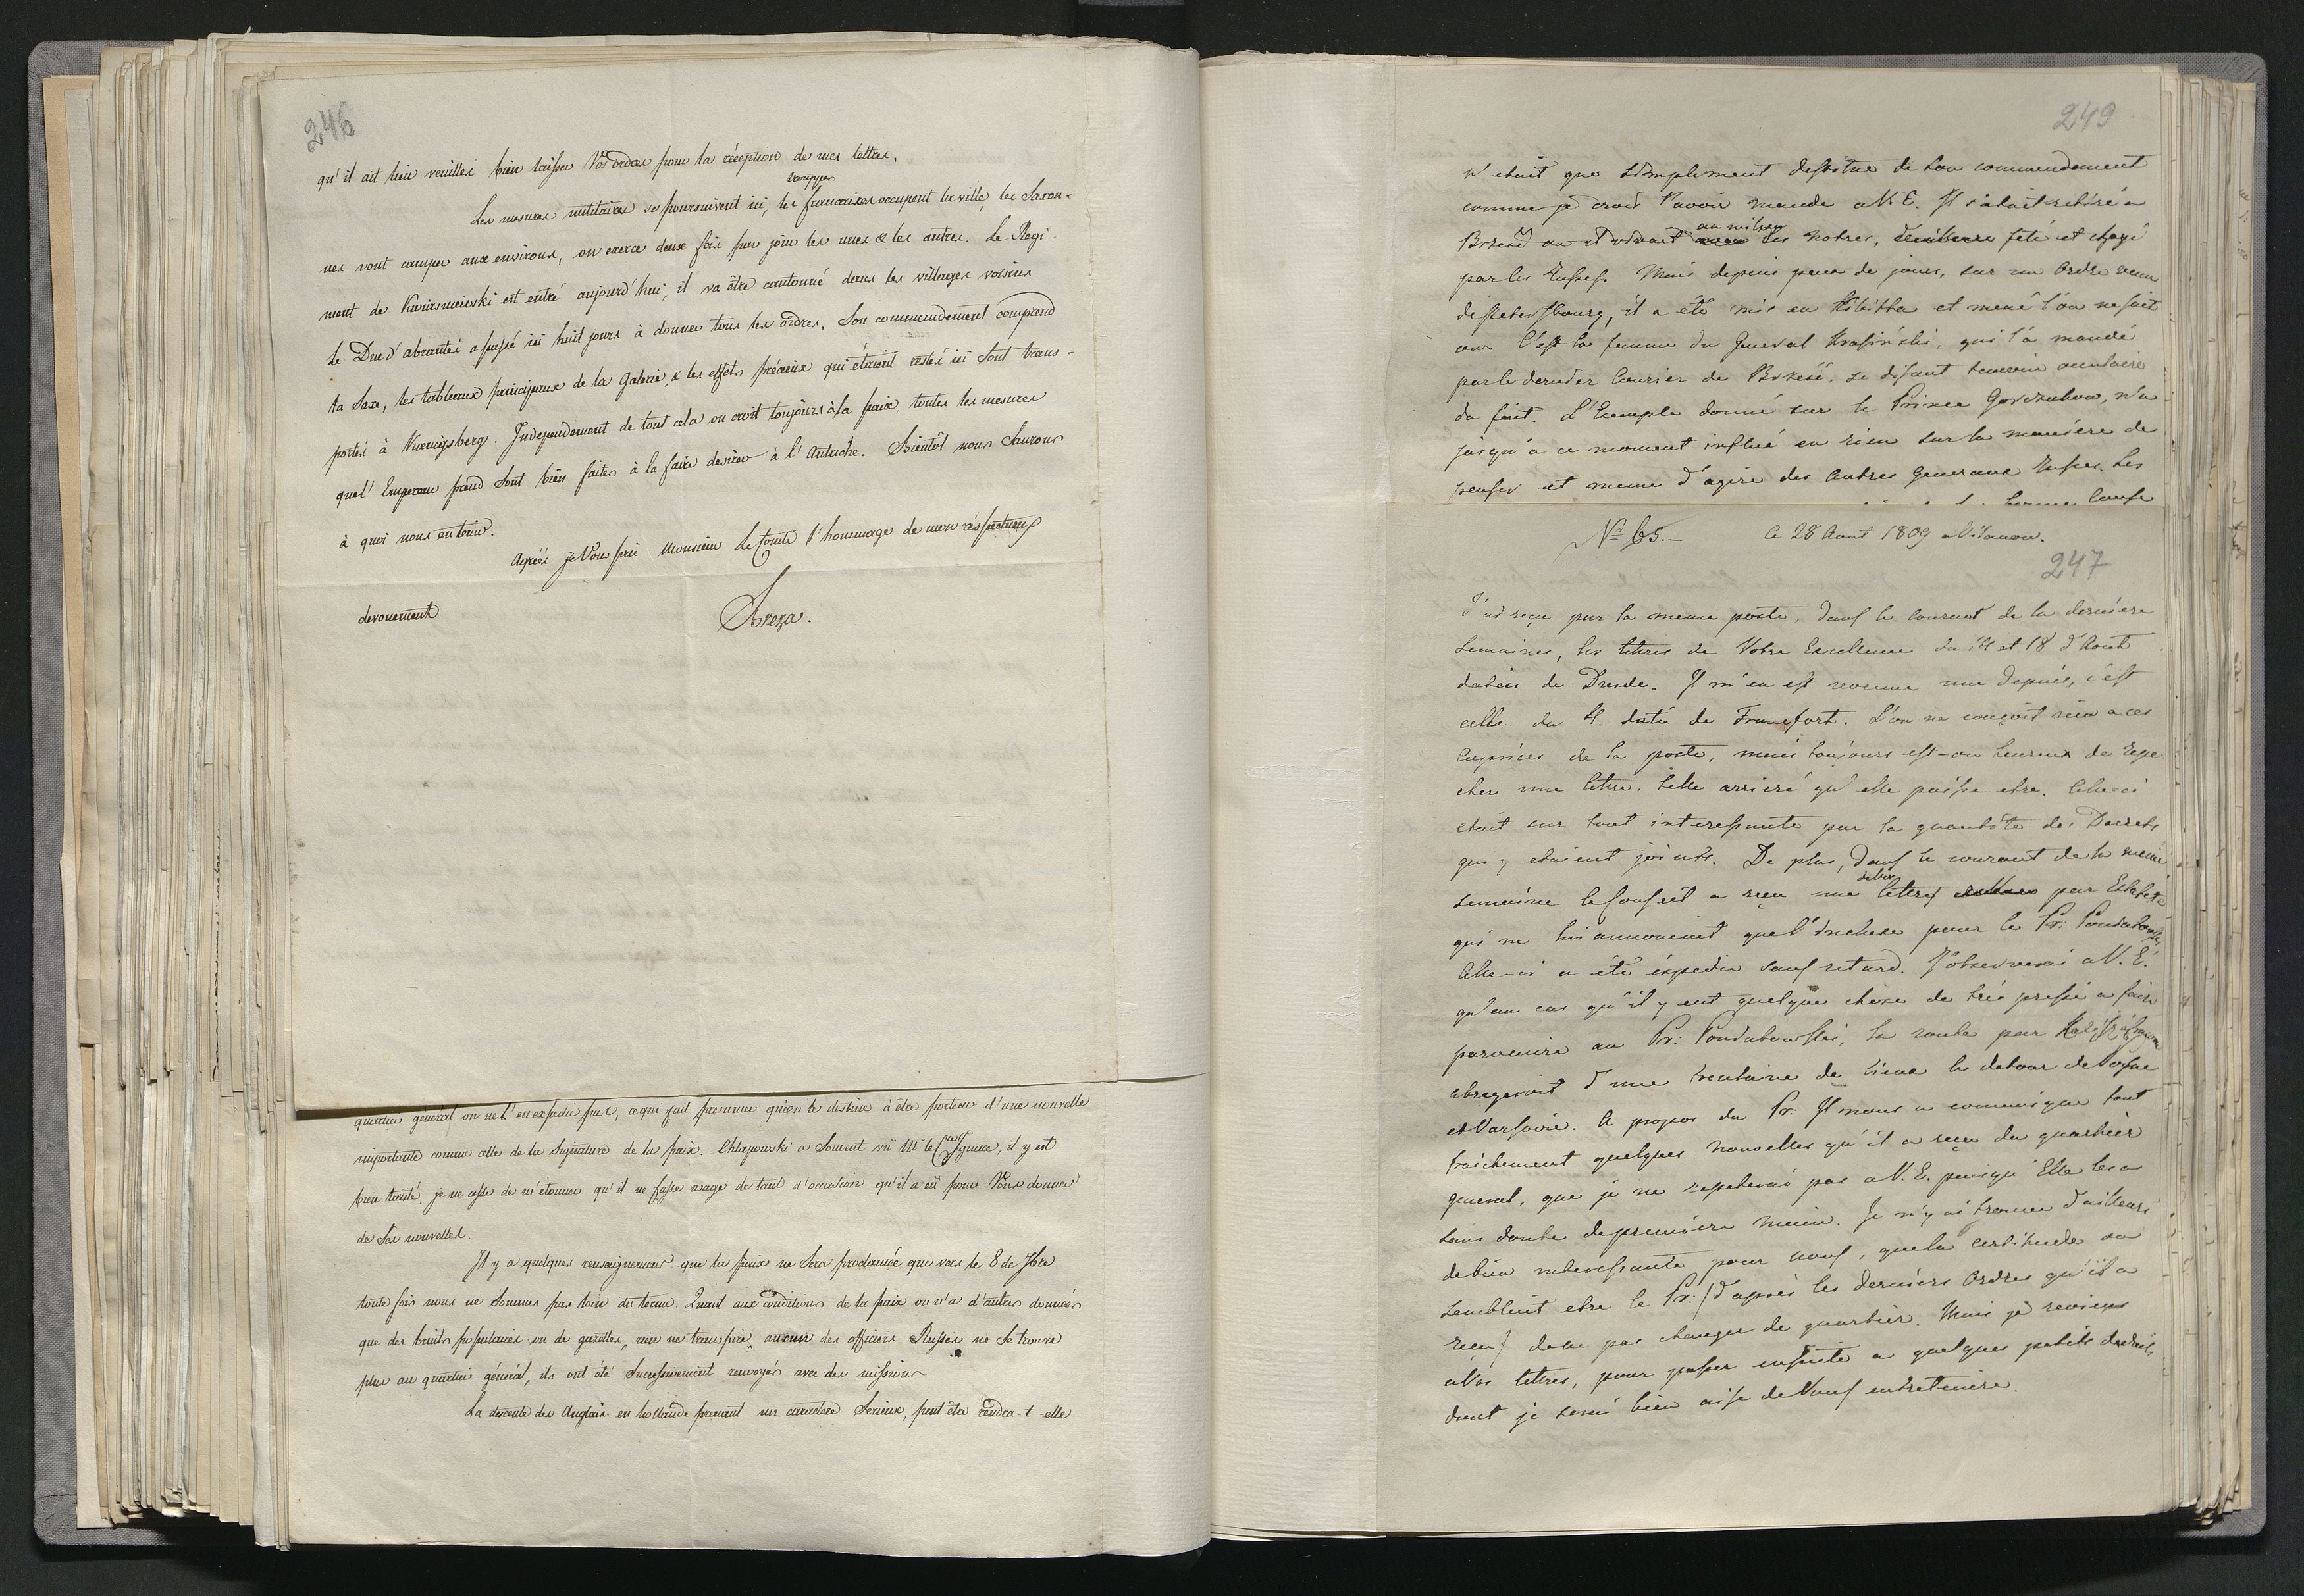 246
qu'il ait bien veuillez bien laisser Vos ordres pour la réception de mes lettres.
Les mesures militaires se poursuivent ici, les troupes francaises occupent la ville, les Saxon-
nes vont camper aux environs, on exerce deux fois par jour les unes & les autres. Le Regi-
ment de est entré aujourd'hui, il va être cantonné dans les villages voisins
le Duc d'abrantes a passé ici huit jours à donner tous les ordres. Son commendement comprend
la Saxe, les tableaux principaux de la Galerie, & les effets précieux qui étaient restés ici sont trans-
portés à Kœnigsberg. Independement de tout cela on croit toujours à la paix, toutes les mesures
quel' Empereur prend sont bien faites à la faire desirer à l'Autriche. Bientôt nous saurons
à quoi nous en tenir.
Agréés je Vous prie Monsieur le Comte l'hommage de mon réspectueux
devouement
Breza.
quartier général on ne l'en expedie pas, ce qui fait presumer qu'on le destine à être porteur d'une nouvelle
importante comme celle de la Signature de la paix. Chlapowski a souvent vû Mr le Cte Ignace, il y est
bien traité. je ne cesse de m'étonner qu'il ne fasse usage de tant d'occasion qu'il a eû pour Vous donner
de ses nouvelles.
Il y a quelques que la paix ne sera proclamée que vers le 8 de 7bre
toute fois nous ne sommes pas loin du terme. Quant aux conditions de la paix on n'a d'autres données
que des bruits populaires ou de gazettes, rien ne transpire, aucun des officiers Russes ne se trouve
plus au quartier général, ils ont été successivement renvoyés avec des missions
La descente des Anglais en hollande prenant un caractere serieux, peut être rendra-t-elle
249
n'etait que simplement destitue de son commendement
comme je crois l'avoir mande a V. E. Il s'était retiré a
Brzesc ou il vivait au milieu des notres, fêté et choyé
par les Russes. Mais depuis peu de jours, sur un Ordre venu
de Petersbourg, il a été mis en Kibitka et mené l'on ne sait
ou. C'est la femme du General Krasiński, qui l'a mandé
par le dernier Courier de Brzesc, se disant temoin occulaire
du fait. L'Exemple donné sur le Prince Gorczakow, n'a
jusqu'a ce moment influé en rien sur la maniere de
penser et meme d'agire des autres Generaux Russes. Les
bonne Cause
No 65.— Ce 28 Aout 1809 a Vilanow.
247
J'ai reçu par la meme poste, dans le courant de la derniere
semaine, les lettres de Votre Excellence du 14 et 18 d'Aout
datées de Dresde. Il m'en est revenue une depuis, c'est
celle du 4. datée de Francfort. L'on ne conçoit rien a ces
Caprices de la poste, mais toujours est-on heureux de repe
cher une lettre, telle arrieré qu'elle puisse etre. Celle-ci
etait sur tout interessante par la quantité des Decrets
qui y etaient joints. De plus, dans le courant de la même
semaine le Conseil a reçu une lettre par Estafete
qui ne lui annoncait que l'incluse pour le Pr: Poniatowski
Celle-ci a été éxpediée sans retard. J'observerai a V. E.
qu'au cas qu'il y eut quelque chose de très pressé a faire
parvenire au Pr: Poniatowski, la route par
abregerait d'une trentaine de lieux le detour de Posne
et Varsovie. A propos du Pr: Il nous a comunique tout
fraichement quelques nouvelles qu'il a reçu du quartier
general, que je ne repeterai pas a V. E. puisqu'Elle les a
sans doute de premiere main. Je n'y ai trouvé d'ailleurs
de bien interessante pour nous, que la certitude ou
semblait etre le Pr: (d'après les derniers Ordres qu'il a
reçu) de ne pas changer de quartier. Mais je reviens
a Vos lettres, pour passer ensuite a quelques petits details,
dont je serai bien aise de Vous entretenire.